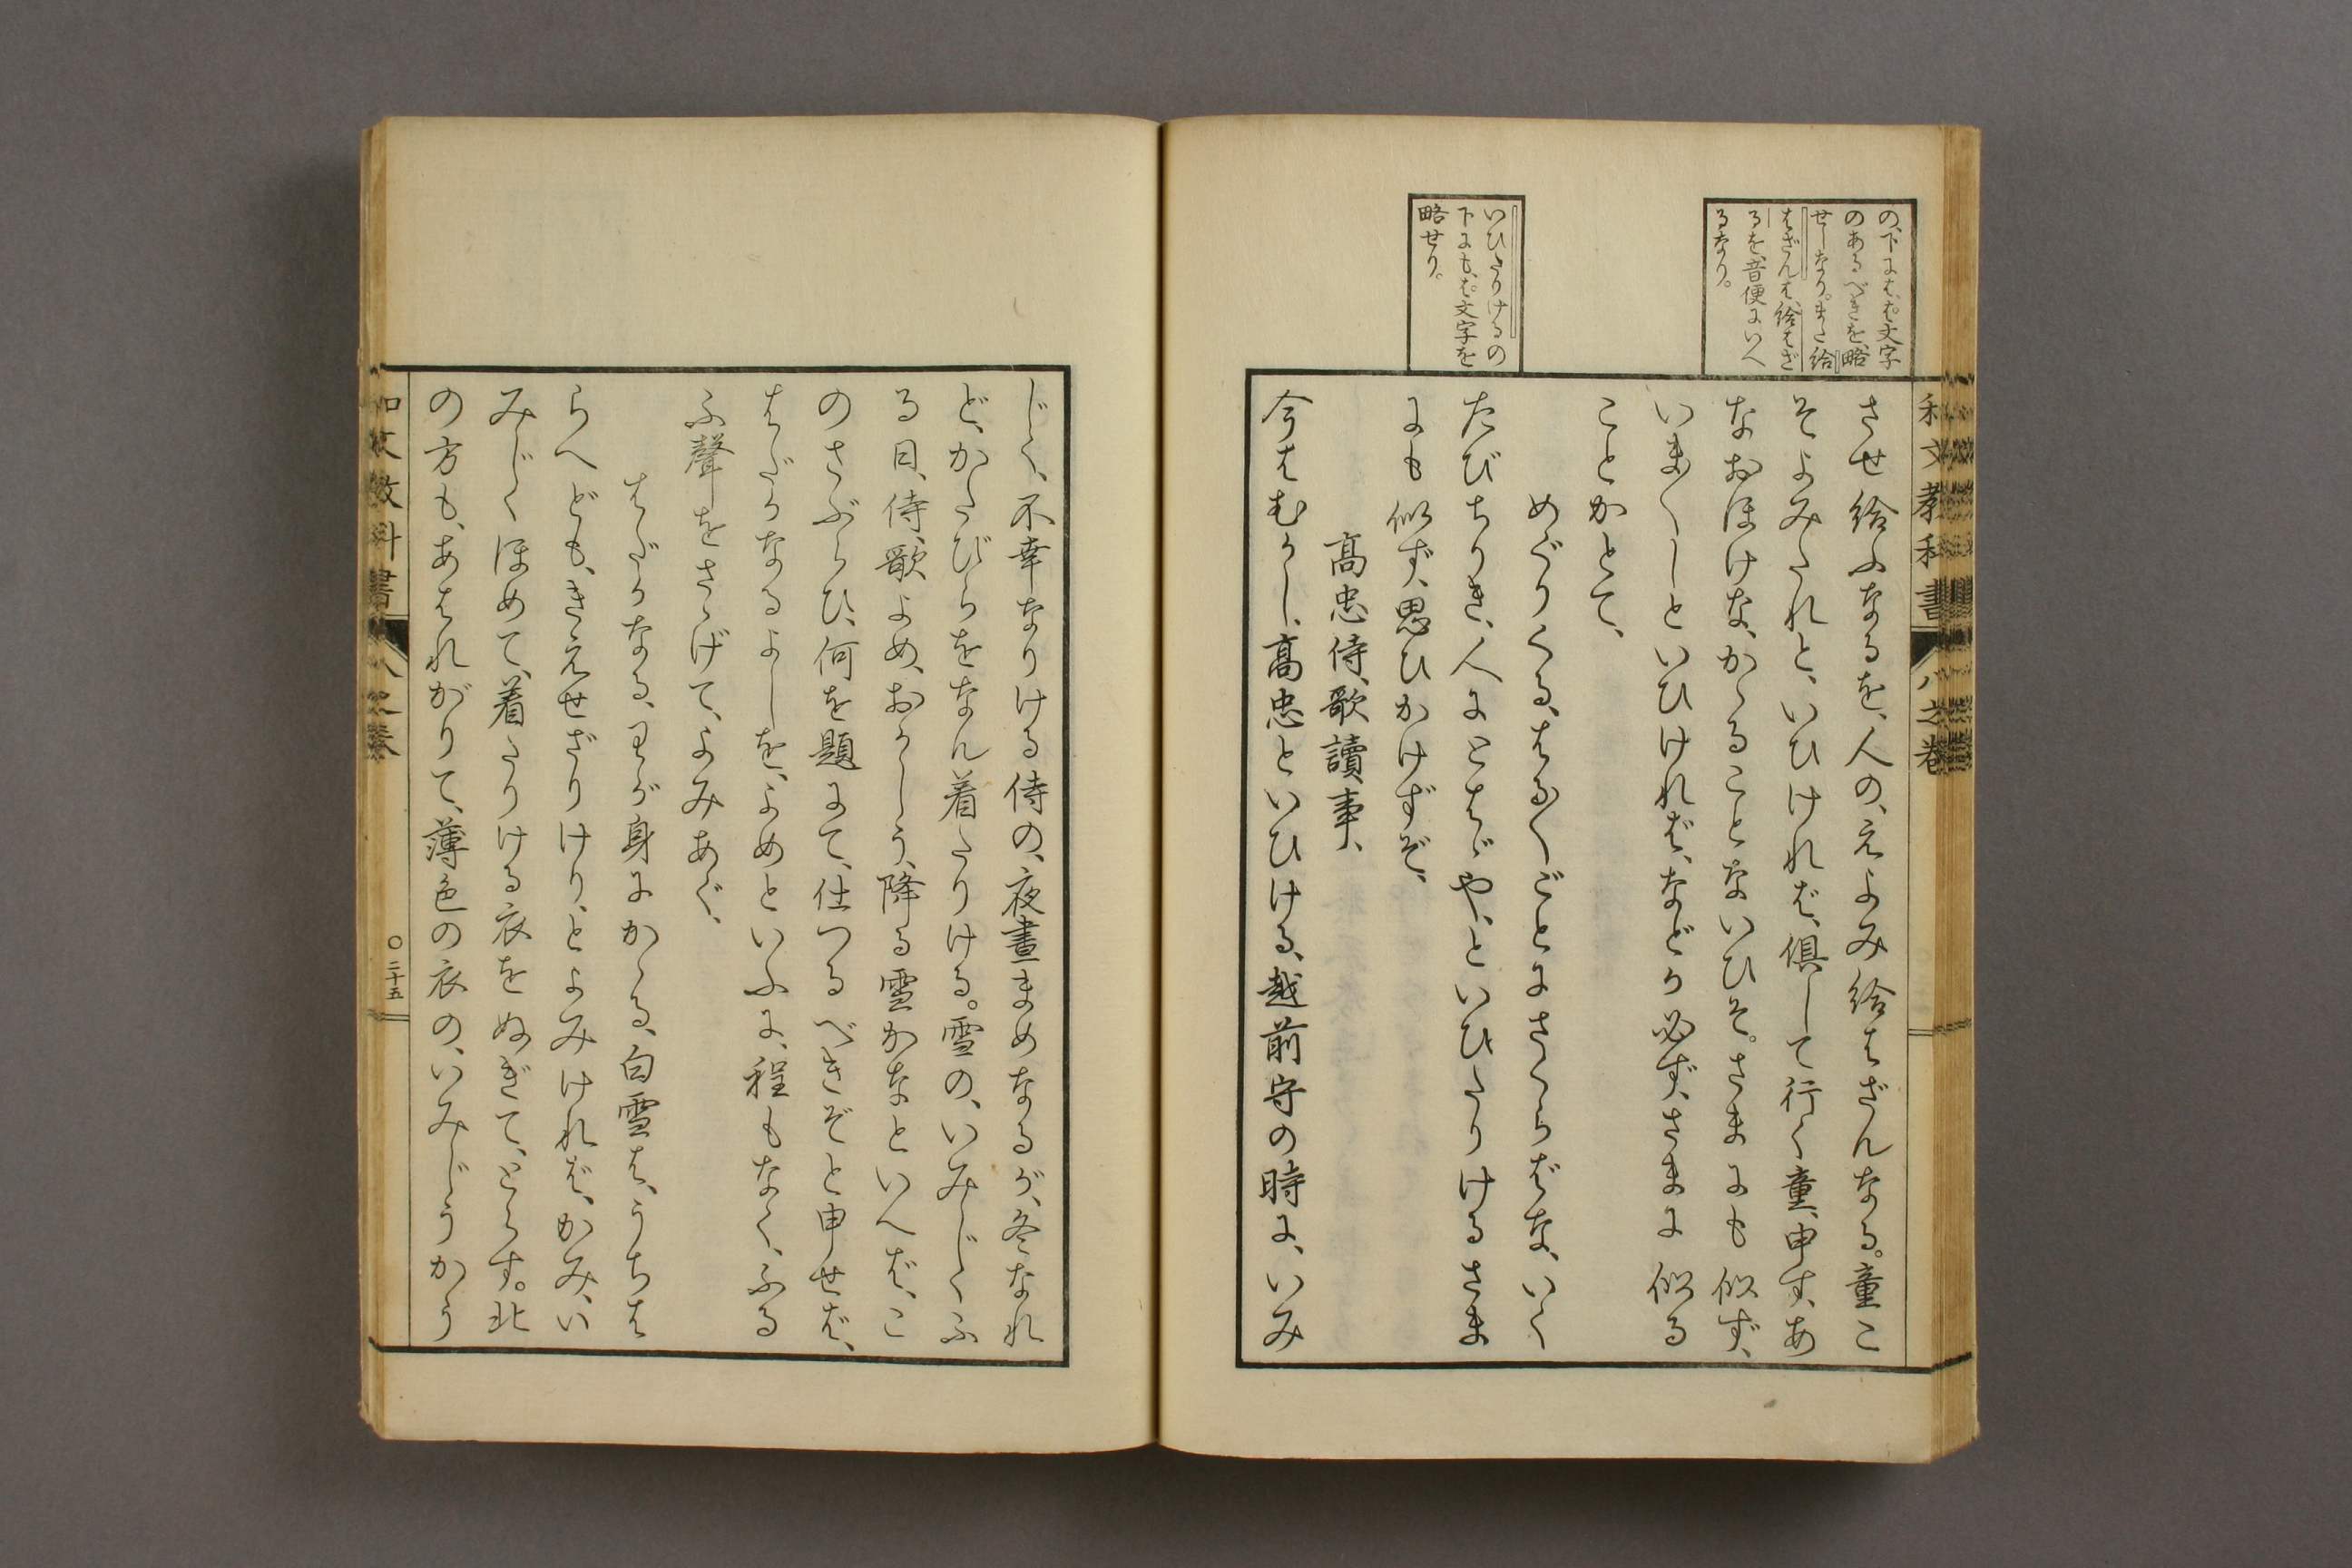 和文教科書 八之巻
の、下には、ば文字
のあるべきを、略
せしなり。また給
はざんは、給はざ
るを、音便にいへ
るなり。
いひたりけるの
下にも、ば文字を
略せり。
させ給ふなるを、人の、えよみ給はざんなる。童こ
そよみたれと、いひければ、倶して行く童、申す、あ
なおほけな、かゝることないひそ。さまにも似ず、
いま〱しといひければ、などか必ず、さまに似る
ことかとて、
めぐりくる、はる〲ごとにさくらばな、いく
たびちりき、人にとはゞや、といひたりけるさま
にも似ず、思ひかけずぞ、
高忠侍、歌讀事、
今はむかし、高忠といひける、越前守の時に、いみ
じく、不幸なりける侍の、夜晝まめなるが、冬なれ
ど、かたびらをなん着たりける。雪の、いみじくふ
る日、侍、歌よめ、おかしう、降る雪かなといへば、こ
のさぶらひ、何を題にて、仕つるべきぞと申せば、
はだかなるよしを、よめといふに、程もなく、ふる
ふ聲をさゝげて、よみあぐ、
はだかなる、わが身にかゝる、白雪は、うちは
らへども、きえせざりけり、とよみければ、かみ、い
みじくほめて、着たりける衣をぬぎて、とらす。北
の方も、あはれがりて、薄色の衣の、いみじうかう
和文教科書 八之巻 ○二十五